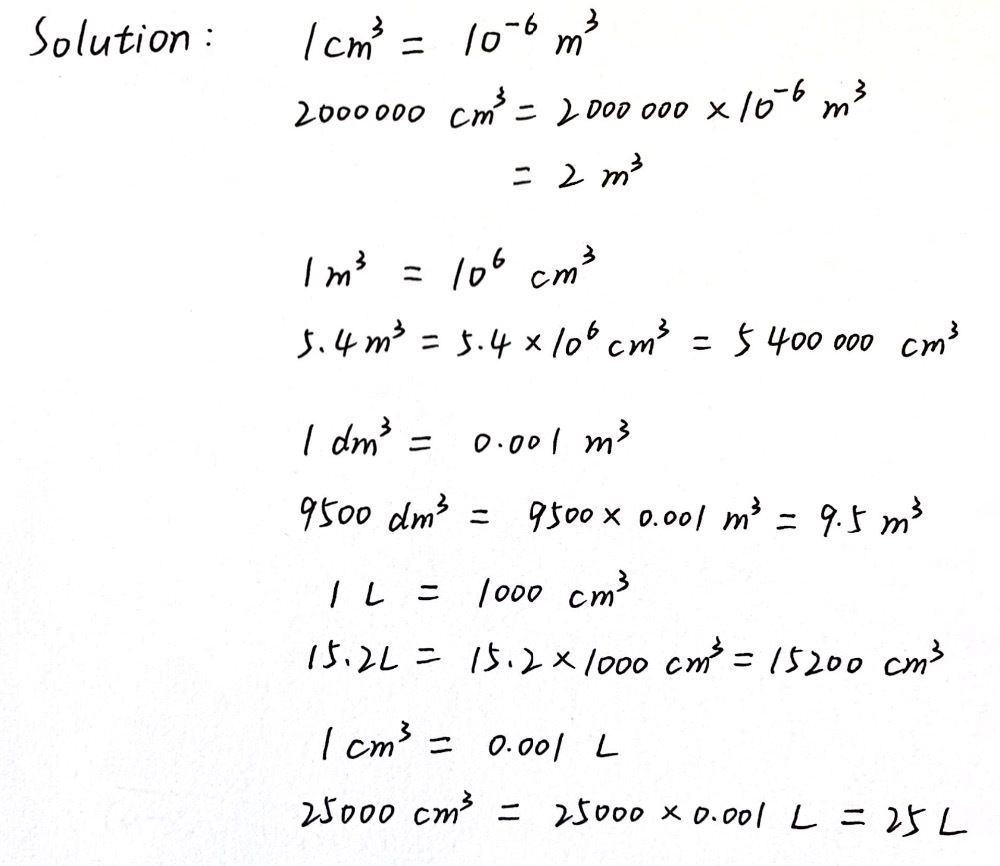 Solution: 1 cm³ = 10⁻⁶ m³
2000000 cm³ = 2000 000 × 10⁻⁶ m³
= 2 m³
1 m³ = 10⁶ cm³
5.4 m³ = 5.4 × 10⁶ cm³ = 5 400 000 cm³
1 dm³ = 0.001 m³
9500 dm³ = 9500 × 0.001 m³ = 9.5 m³
1 L = 1000 cm³
15.2L = 15.2 × 1000 cm³ = 15200 cm³
1 cm³ = 0.001 L
25000 cm³ = 25000 × 0.001 L = 25 L